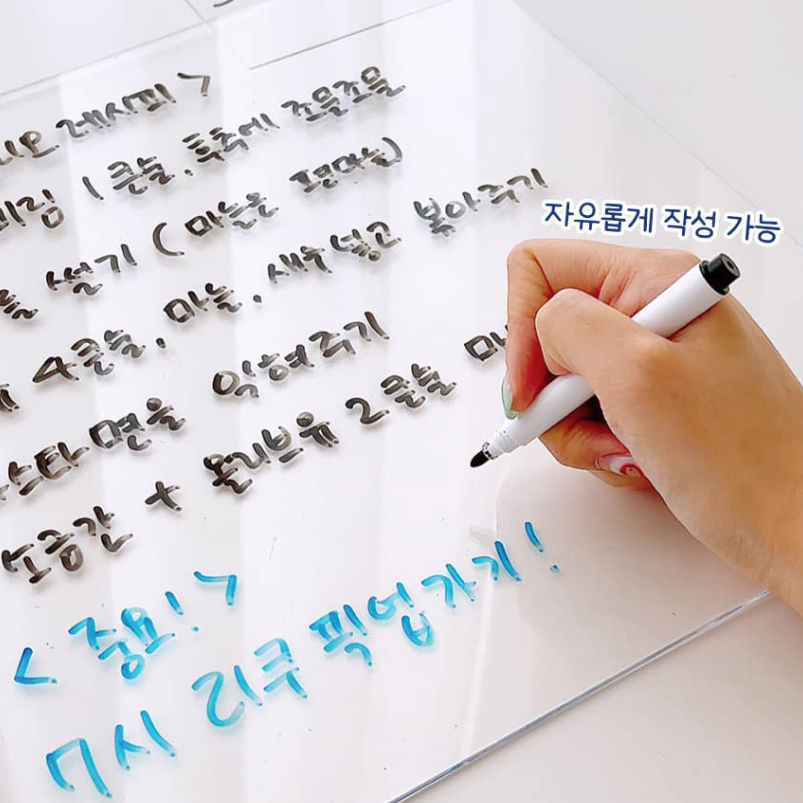 레시피 >
1큰술, 후추에 조물조물
썰기 (마늘은 편마늘)
4큰술, 마늘, 새우넣고 볶아주기
면을 익혀주기
소금간 + 올리브유 2큰술
<중요!>
7시 리쿠 픽업가기!
자유롭게 작성 가능